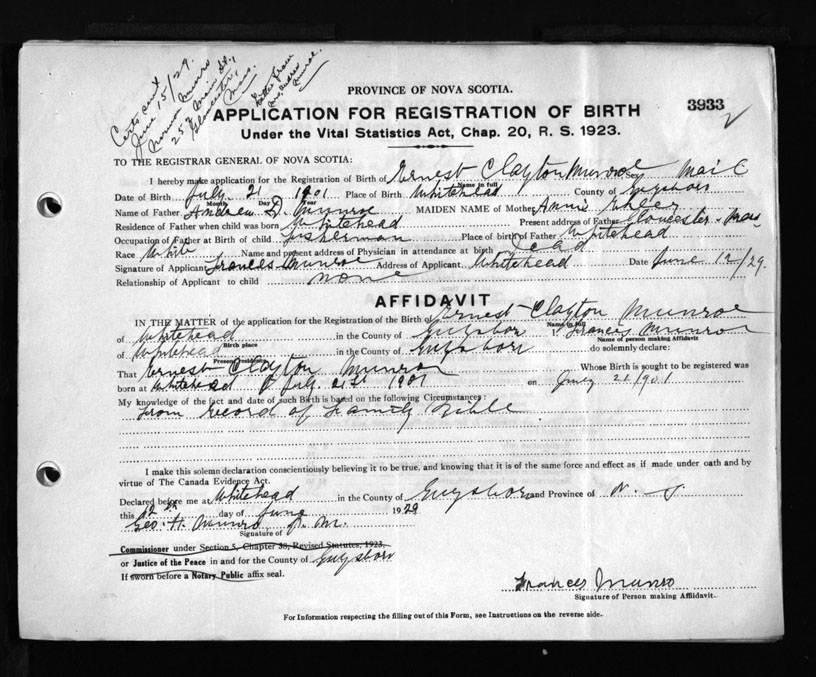 Certs sent
June 15/29.
Norman Munro
25 Main St.,
Gloucester,
Mass.
Letter from
Munroe.
PROVINCE OF NOVA SCOTIA.
3933
APPLICATION FOR REGISTRATION OF BIRTH
Under the Vital Statistics Act, Chap. 20, R. S. 1923.
TO THE REGISTRAR GENERAL OF NOVA SCOTIA:
I hereby make application for the Registration of Birth of Ernest Clayton Munroe Sex Male
Name in full
Date of Birth July 21 1901 Place of Birth Whitehead County of Guysboro
Month Day Year
Name of Father Andrew D. Munroe MAIDEN NAME of Mother Annie
Residence of Father when child was born Whitehead Present address of Father Gloucester Mass
Occupation of Father at Birth of child fisherman Place of birth of Father Whitehead
Race White Name and present address of Physician in attendance at birth dead
Signature of Applicant Frances Munroe Address of Applicant Whitehead Date June 12/29.
Relationship of Applicant to child none
AFFIDAVIT
IN THE MATTER of the application for the Registration of the Birth of Ernest Clayton Munroe
Name in full
of Whitehead in the County of Guysboro I, Frances Munroe
Birth place Name of person making Affidavit
of Whitehead in the County of Guysboro do solemnly declare:
Present residence
That Ernest Clayton Munroe Whose Birth is sought to be registered was
born at Whitehead July 21st 1901 on July 21/901
My knowledge of the fact and date of such Birth is based on the following Circumstances:
From record of Family Bible
I make this solemn declaration conscientiously believing it to be true, and knowing that it is of the same force and effect as if made under oath and by
virtue of The Canada Evidence Act.
Declared before me at Whitehead in the County of Guysboro and Province of N. S
this 12 day of June 1929
Geo. H. Munro J. M.
Signature of
Commissioner under Section 5, Chapter 38, Revised Statutes, 1923,
or Justice of the Peace in and for the County of Guysboro
If sworn before a Notary Public affix seal.
Frances Munro
Signature of Person making Affidavit.
For Information respecting the filling out of this Form, see Instructions on the reverse side.